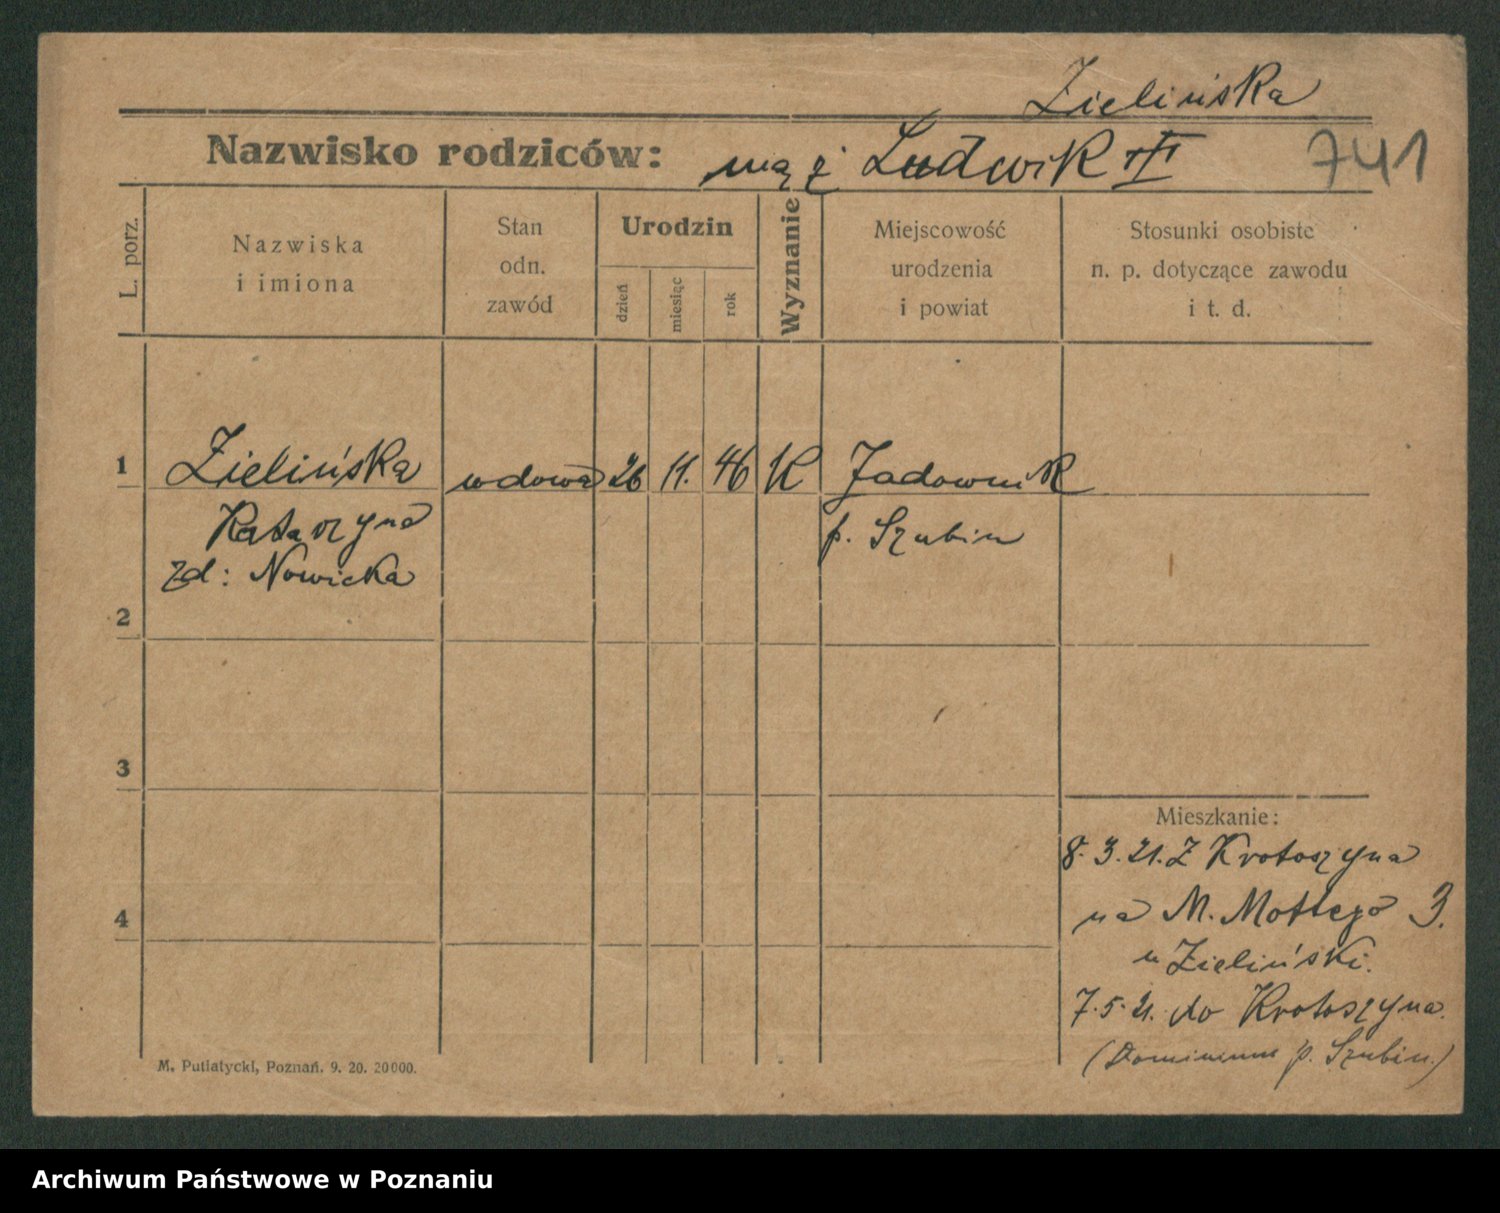 Zielińska
Nazwisko rodziców: mąż Ludwik
741
L. porz.
Nazwiska
i imiona
Stan
odn.
zawód
Urodzin
dzień
miesiąc
rok
Wyznanie
Miejscowość
urodzenia
i powiat
Stosunki osobiste
n. p. dotyczące zawodu
i t. d.
1 Zielińska wdowa 26 11. 46 K Jadownik
Katarzyna p. Szubin
zd: Nowicka
2
3
4
Mieszkanie:
8. 3. 21. Z Krotoszyna
na M. Mottego 3.
u Zieliński.
7. 5. 21. do Krotoszyna.
(Dominium p. Szubin.)
M. Putiatycki, Poznań. 9. 20. 20000.
Archiwum Państwowe w Poznaniu